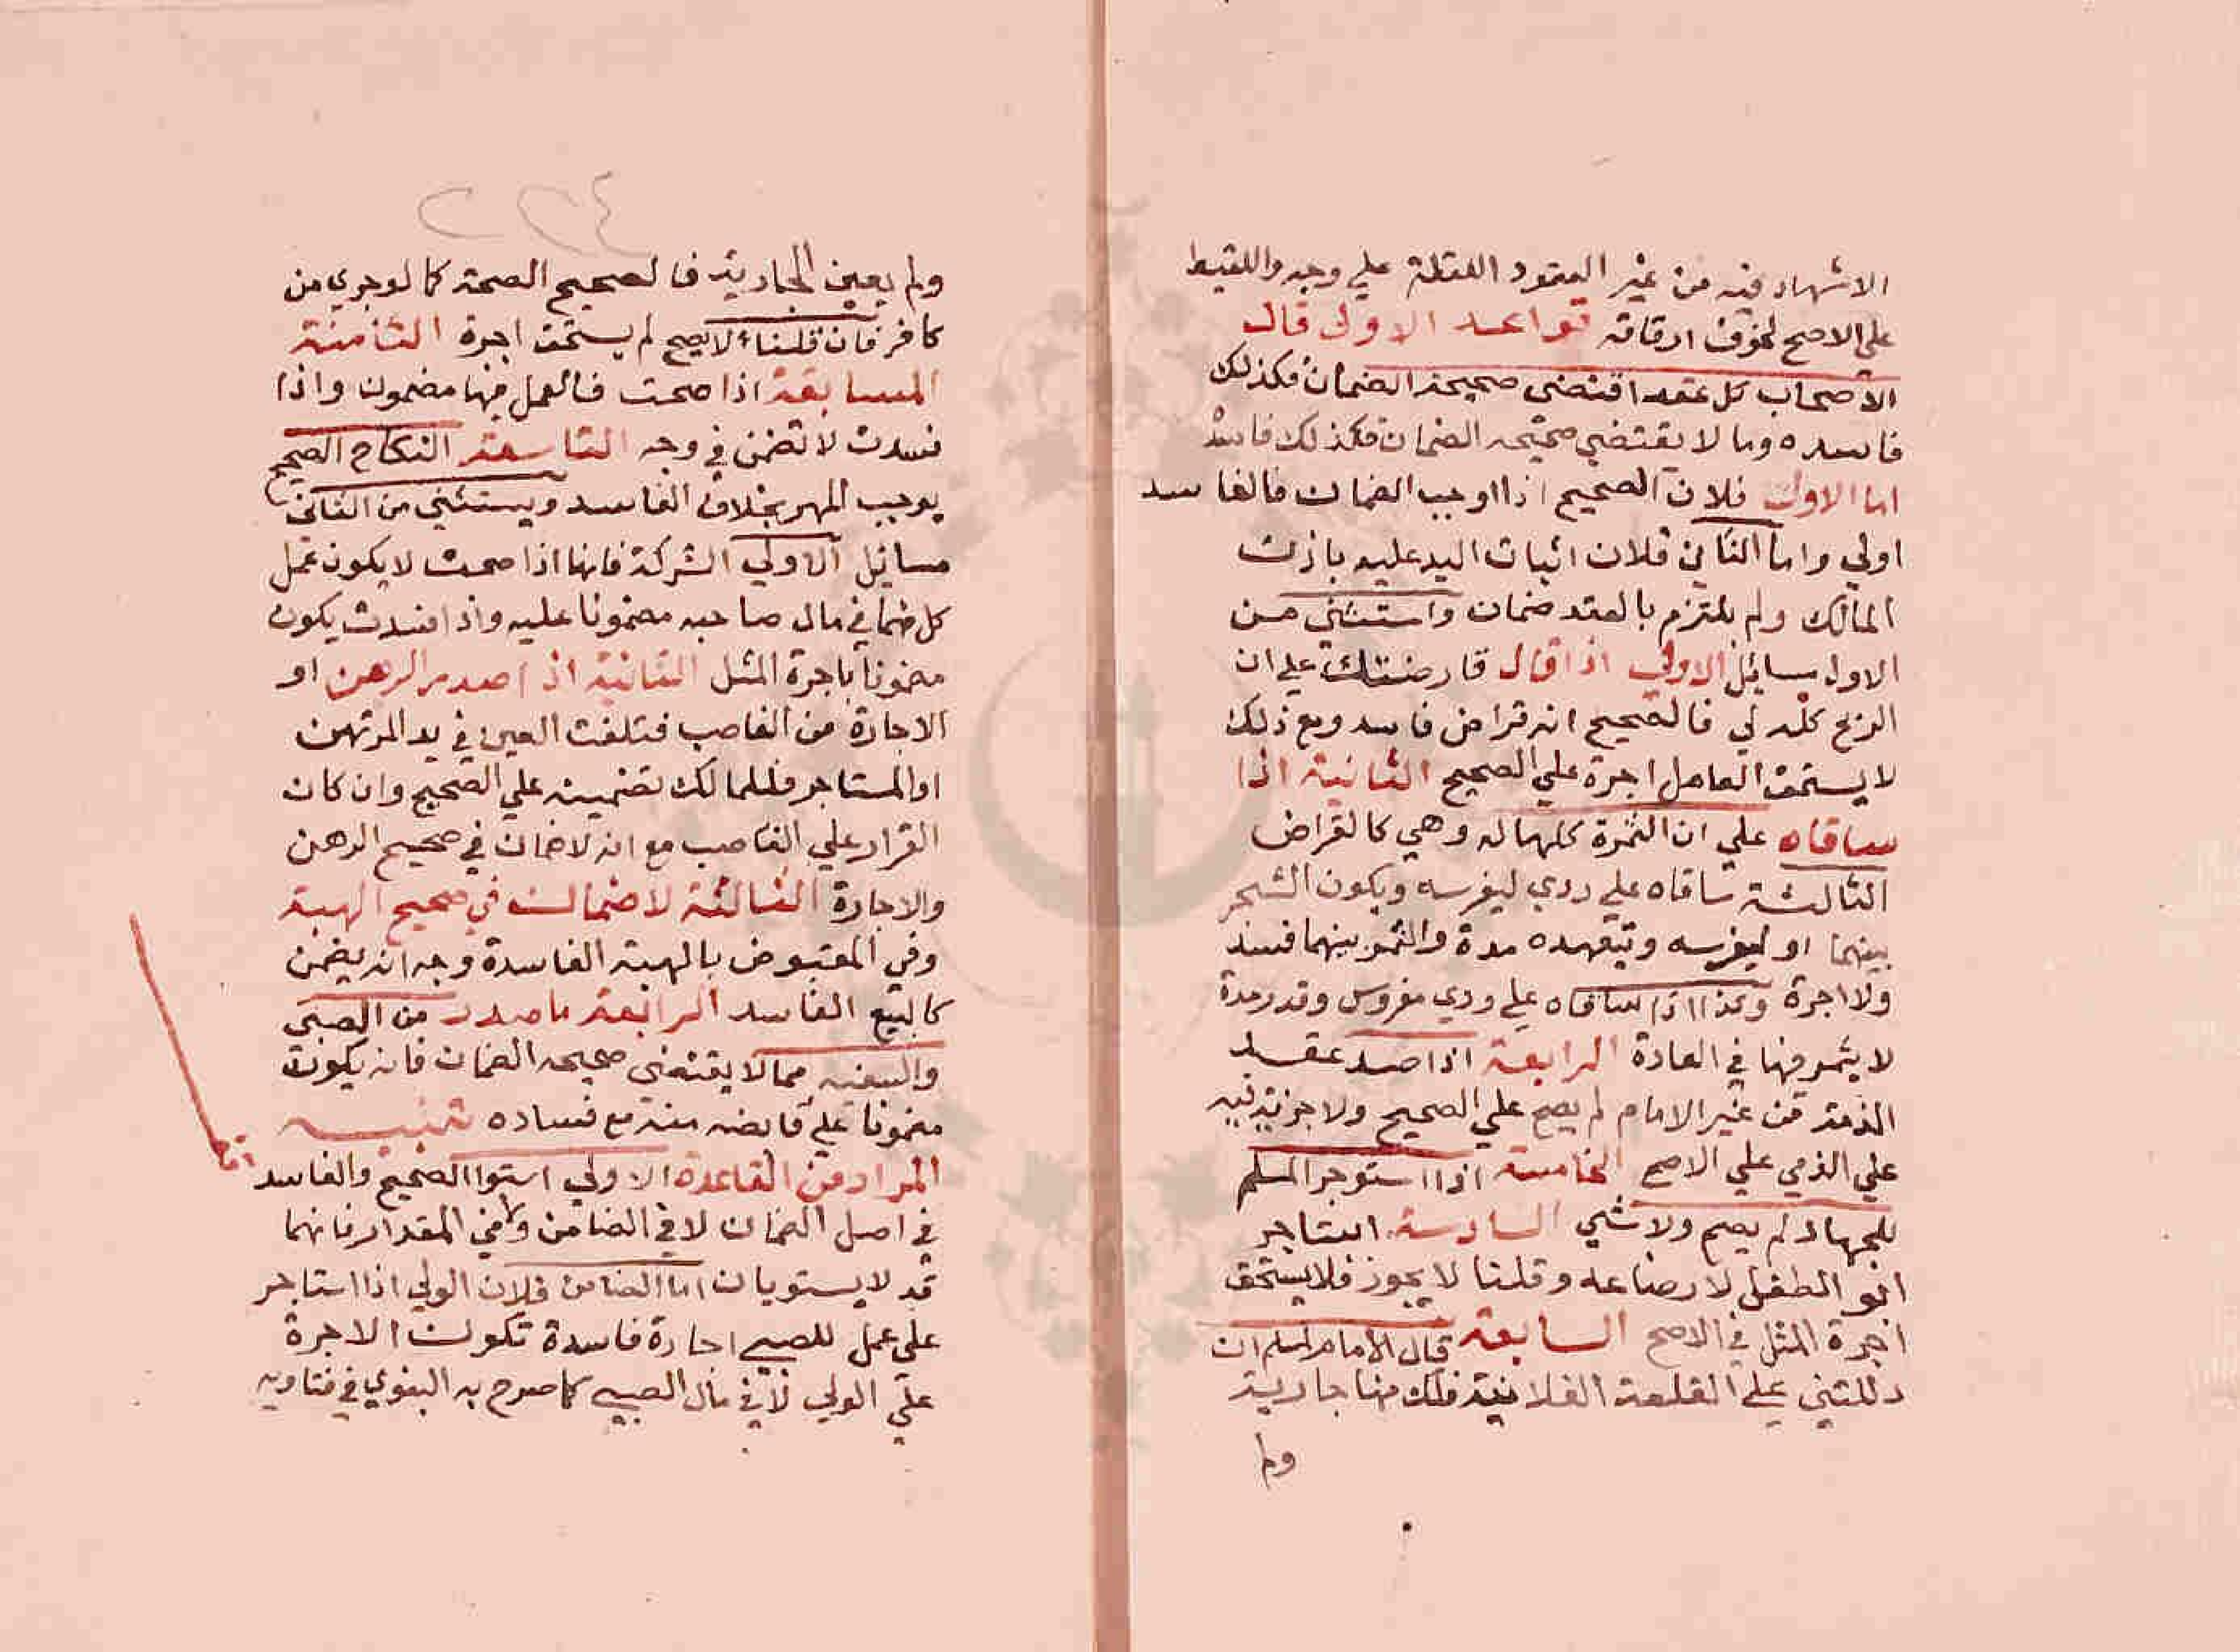 الاشهاد فيه من غير العقود اللقطة علي وجه واللقيط
علي الاصح لخوف ارقاقه قواعد الاولي قال
الاصحاب كل عقد اقتضي صحيحه الضمان فكذلك
فاسده وما لا يقتضي صحيحه الضمان فكذلك فاسده
اما الاول فلان الصحيح اذا اوجب الضمان فالفاسد
اولي واما الثاني فلان اثبات اليد عليه باذن
المالك ولم يلتزم بالعقد ضمان واستثني من
الاول مسائل الاولي اذا قال قارضتك علي ان
الربح كله لي فالصحيح انه قراض فاسد ومع ذلك
لا يستحق العامل اجرة علي الصحيح الثانية اذا
ساقاه علي ان الثمرة كلها له وهي كالقراض
الثالثة ساقاه علي ودي ليغرسه ويكون الشجر
بينهما او ليغرسه ويتعهده مدة والثمر بينهما فسد
ولا اجرة وكذا اذا ساقاه علي ودي مغروس وقدر مدة
لا يثمر فيها في العادة الرابعة اذا صدر عقد
الذمة من غير الامام لم يصح علي الصحيح ولا جزية فيه
علي الذمي علي الاصح الخامسة اذا استوجر المسلم
للجهاد لم يصح ولا شي السادسة استاجر
ابو الطفل لارضاعه وقلنا لا يجوز فلا يستحق
اجرة المثل في الاصح السابعة قال الامام لمسلم ان
دللتني علي القلعة الفلانية فلك منها جارية
ولم
٤٢٢
ولم يعين الجارية فالصحيح الصحة كما لو جري من
كافر فان قلنا لا يصح لم يستحق اجرة الثامنة
المسابقة اذا صحت فالعمل فيها مضمون واذا
فسدت لا تضمن في وجه التاسعة النكاح الصحيح
يوجب المهر بخلاف الفاسد ويستثني من الثاني
مسائل الاولي الشركة فانها اذا صحت لا يكون عمل
كل منهما في مال صاحبه مضمونا عليه واذا فسدت يكون
مضمونا باجرة المثل الثانية اذا صدر الرهن او
الاجارة من الغاصب فتلفت العين في يد المرتهن
او المستاجر فللمالك تضمينه علي الصحيح وان كان
القرار علي الغاصب مع انه لا ضمان في صحيح الرهن
والاجارة الثالثة لا ضمان في صحيح الهبة
وفي المقبوض بالهبة الفاسدة وجه انه يضمن
كالبيع الفاسد الرابعة ما صدر من الصبي
والسفيه مما لا يقتضي صحيحه الضمان فانه يكون
مضمونا علي قابضه منه مع فساده تنبيه
المراد من القاعدة الاولي استوا الصحيح والفاسد
في اصل الضمان لا في الضامن ولا في المقدار فانهما
قد لا يستويان اما الضامن فلان الولي اذا استاجر
علي عمل للصبي اجارة فاسدة تكون الاجرة
علي الولي لا في مال الصبي كما صرح به البغوي في فتاويه